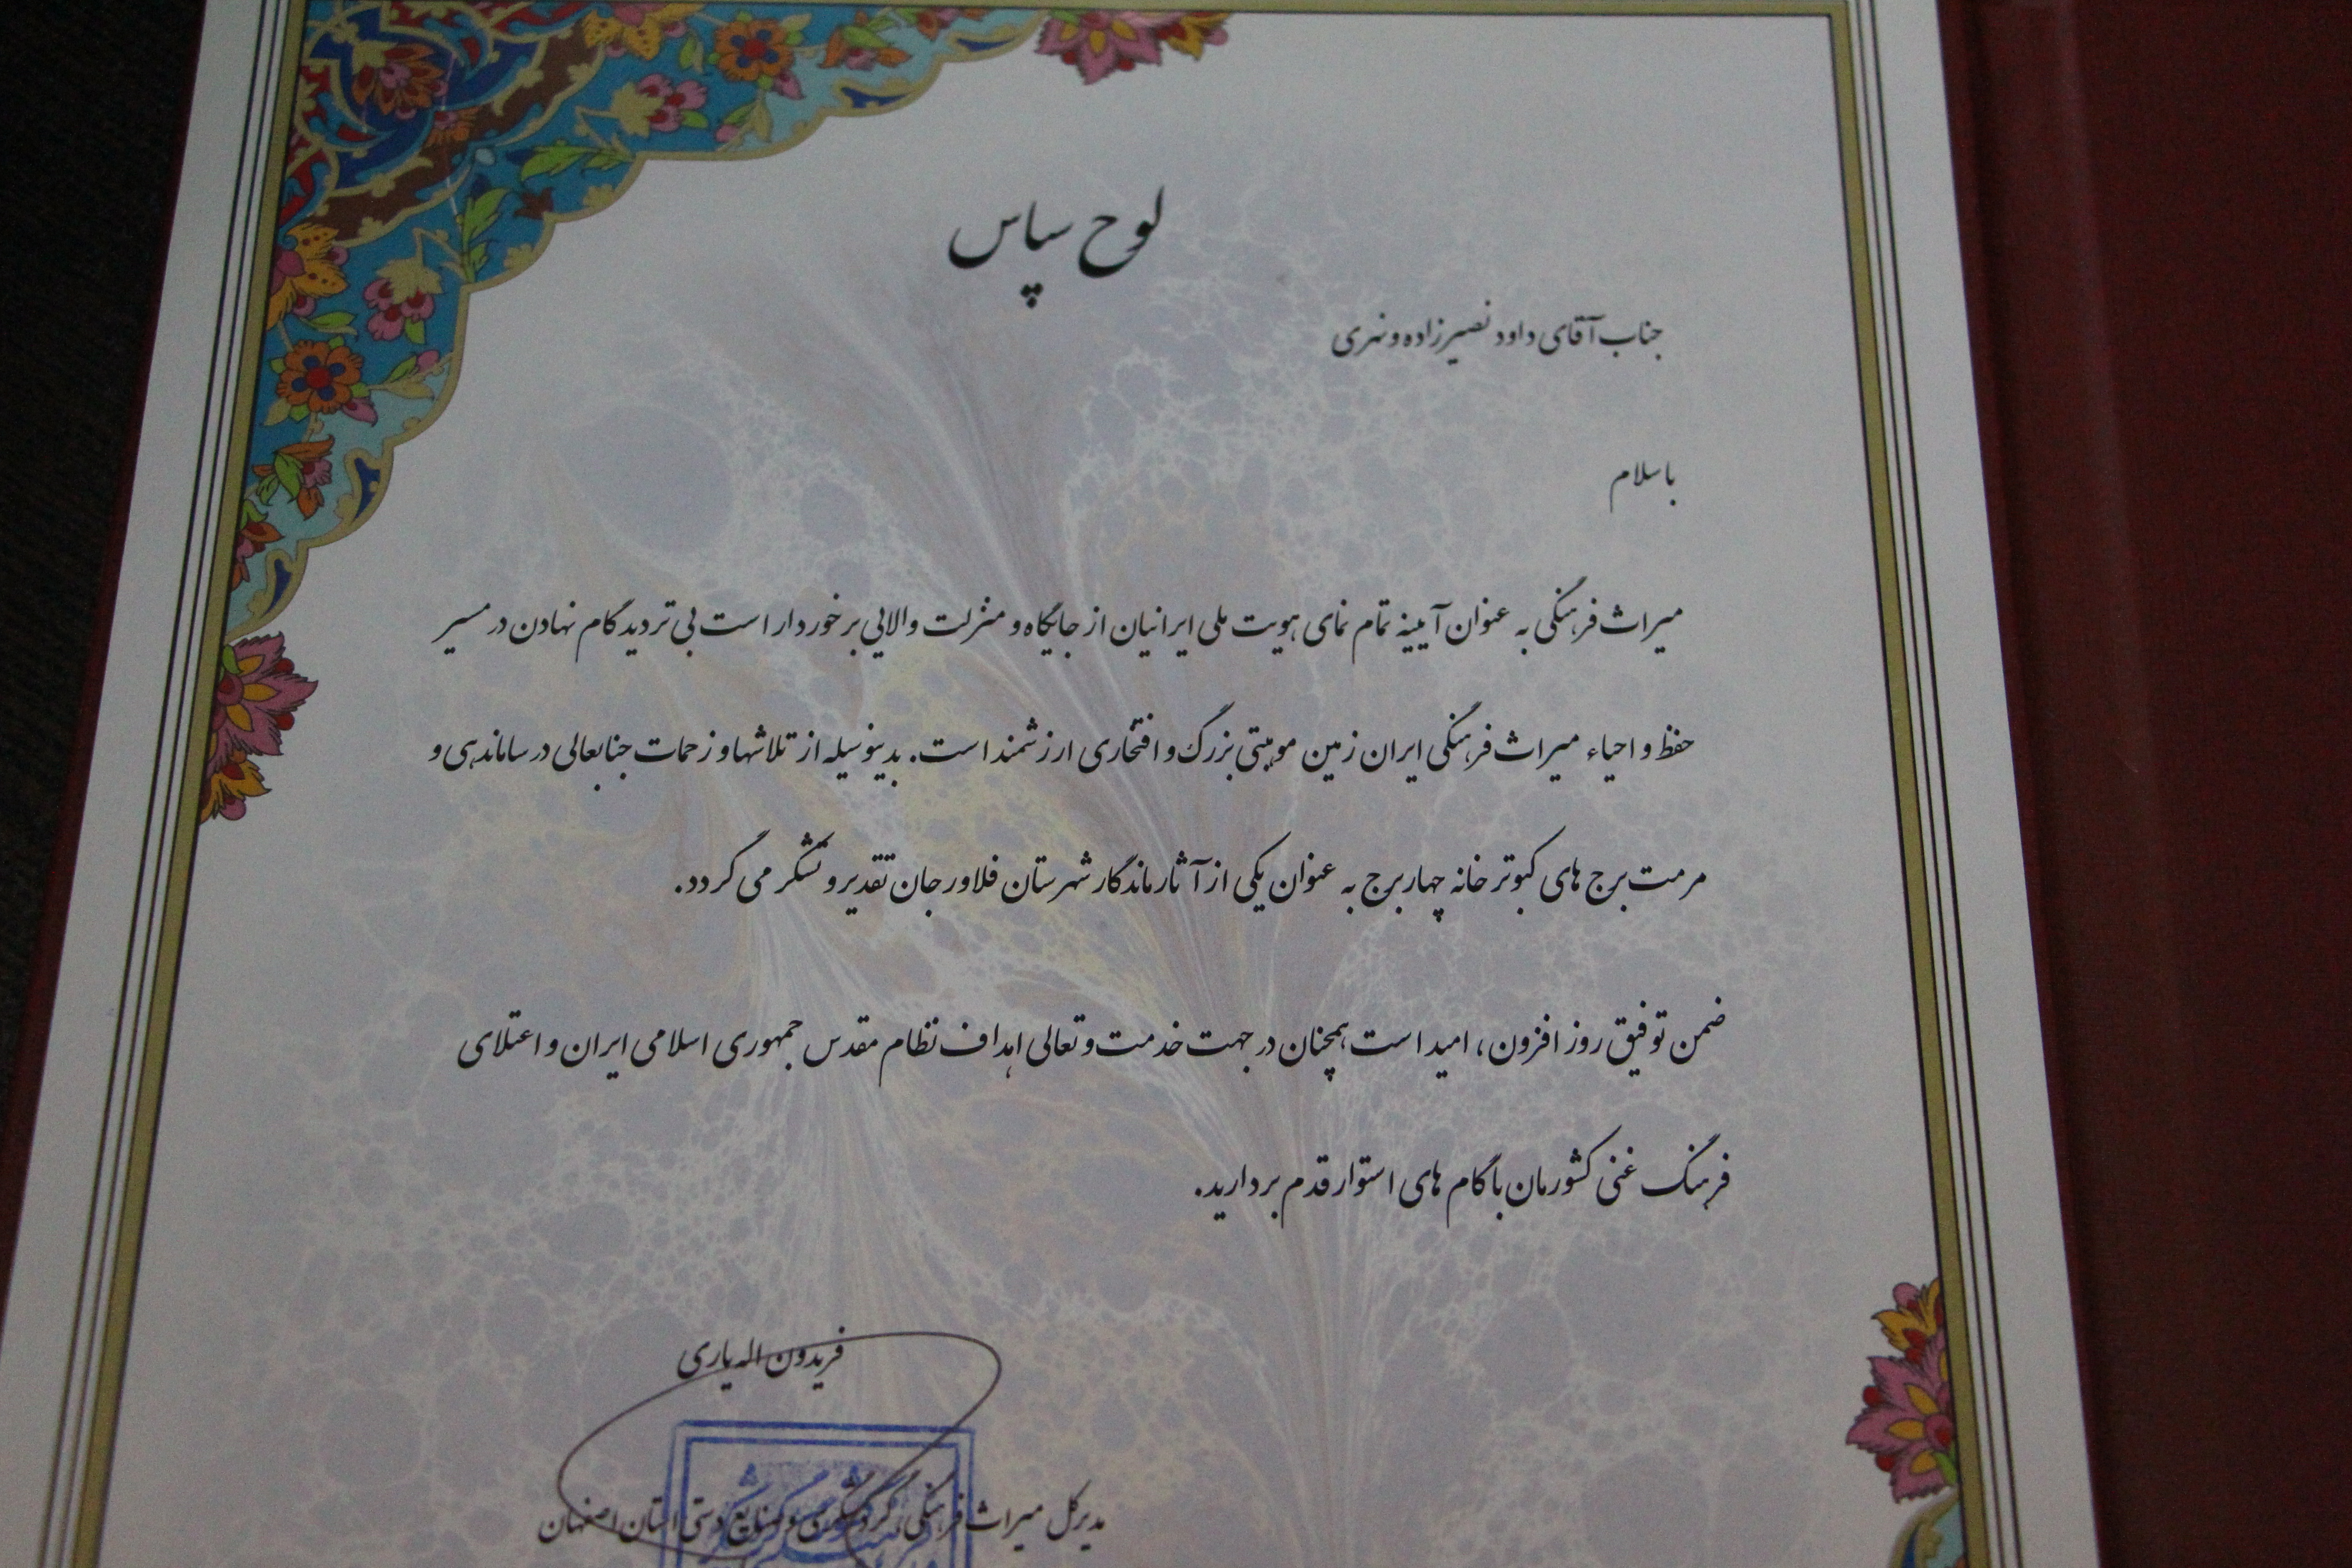 لوح سپاس
جناب آقای داود نصیرزاده ونهری
با سلام
میراث فرهنگی به عنوان آیینه تمام نمای هویت ملی ایرانیان از جایگاه و منزلت والایی برخوردار است بی تردید گام نهادن در مسیر
حفظ و احیاء میراث فرهنگی ایران زمین موهبتی بزرگ و افتخاری ارزشمند است. بدینوسیله از تلاشها و زحمات جنابعالی در ساماندهی و
مرمت برج های کبوترخانه چهاربرج به عنوان یکی از آثار ماندگار شهرستان فلاورجان تقدیر و تشکر می گردد.
ضمن توفیق روز افزون، امید است همچنان در جهت خدمت و تعالی اهداف نظام مقدس جمهوری اسلامی ایران و اعتلای
فرهنگ غنی کشورمان با گام های استوار قدم بردارید.
فریدون اله یاری
مدیرکل میراث فرهنگی، گردشگری و صنایع دستی استان اصفهان